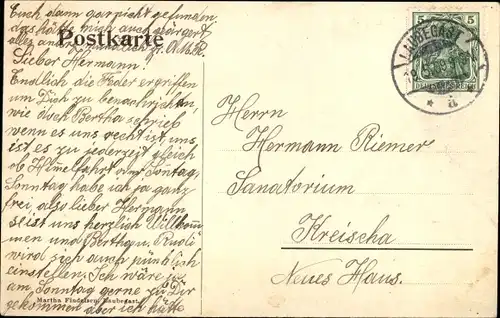 Euch dann gar nicht gefunden,
das hätte mich auch geärgert
alles andere mündlich. Gr. M. R.
Postkarte
Lieber Hermann.
Endlich die Feder ergriffen
um Dich zu benachrichten,
wie doch Bertha schrieb
wenn es uns recht ist, uns
ist es zu jederzeit gleich
ob Himelfahrt oder Sontag,
Sonntag habe ich ja ganz
frei, also lieber Hermann
seist uns herzlich Willkom
men und Bertha u. Rudi
wird sich auch pünklich
einstellen, Ich wäre ja
am Sonntag gerne zu Dir
gekommen aber ich hätte
Martha Findeisen, Laubegast.
5 5
DEUTSCHES REICH
LAUBEGAST
Herrn
Hermann Riemer
Sanatorium
Kreischa
Neues Haus.